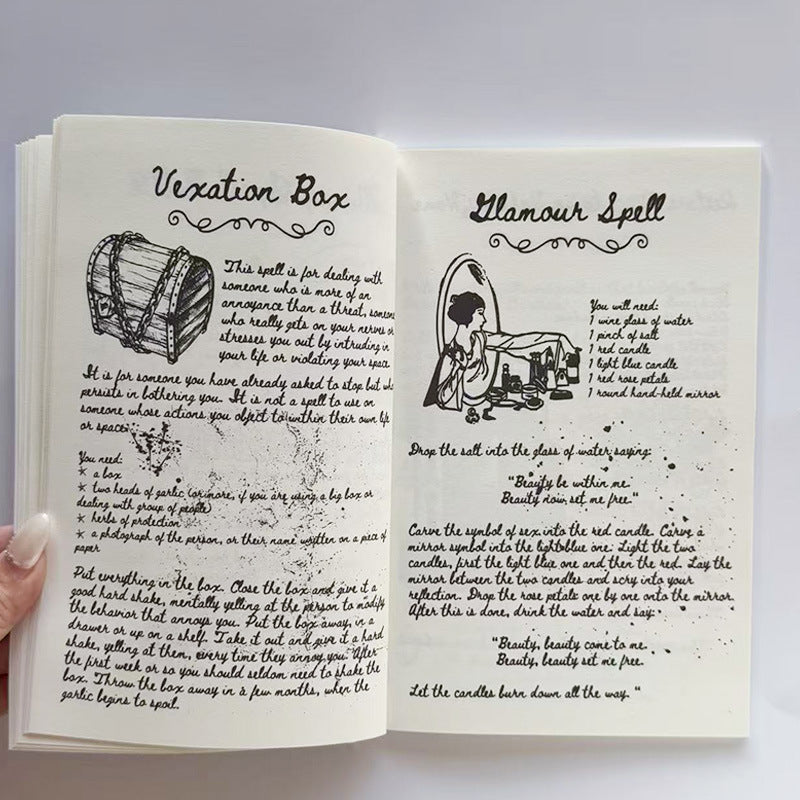 Vexation Box
This spell is for dealing with
someone who is more of an
annoyance than a threat, someone
who really gets on your nerves or
stresses you out by intruding in
your life or violating your space.
It is for someone you have already asked to stop but who
persists in bothering you. It is not a spell to use on
someone whose actions you object to within their own life
or space.
You need:
* a box
* two heads of garlic (or more, if you are using a big box or
dealing with group of people)
* herbs of protection
* a photograph of the person, or their name written on a piece of
paper
Put everything in the box. Close the box and give it a
good hard shake, mentally yelling at the person to modify
the behavior that annoys you. Put the box away, in a
drawer or up on a shelf. Take it out and give it a hard
shake, yelling at them, every time they annoy you. After
the first week or so you should seldom need to shake the
box. Throw the box away in a few months, when the
garlic begins to spoil.
Glamour Spell
You will need:
1 wine glass of water
1 pinch of salt
1 red candle
1 light blue candle
1 red rose petals
1 round hand-held mirror
Drop the salt into the glass of water saying:
"Beauty be within me.
Beauty now set me free."
Carve the symbol of sex into the red candle. Carve a
mirror symbol into the light blue one. Light the two
candles, first the light blue one and then the red. Lay the
mirror between the two candles and scry into your
reflection. Drop the rose petals one by one onto the mirror.
After this is done, drink the water and say:
"Beauty, beauty come to me.
Beauty, beauty set me free.
Let the candles burn down all the way. "